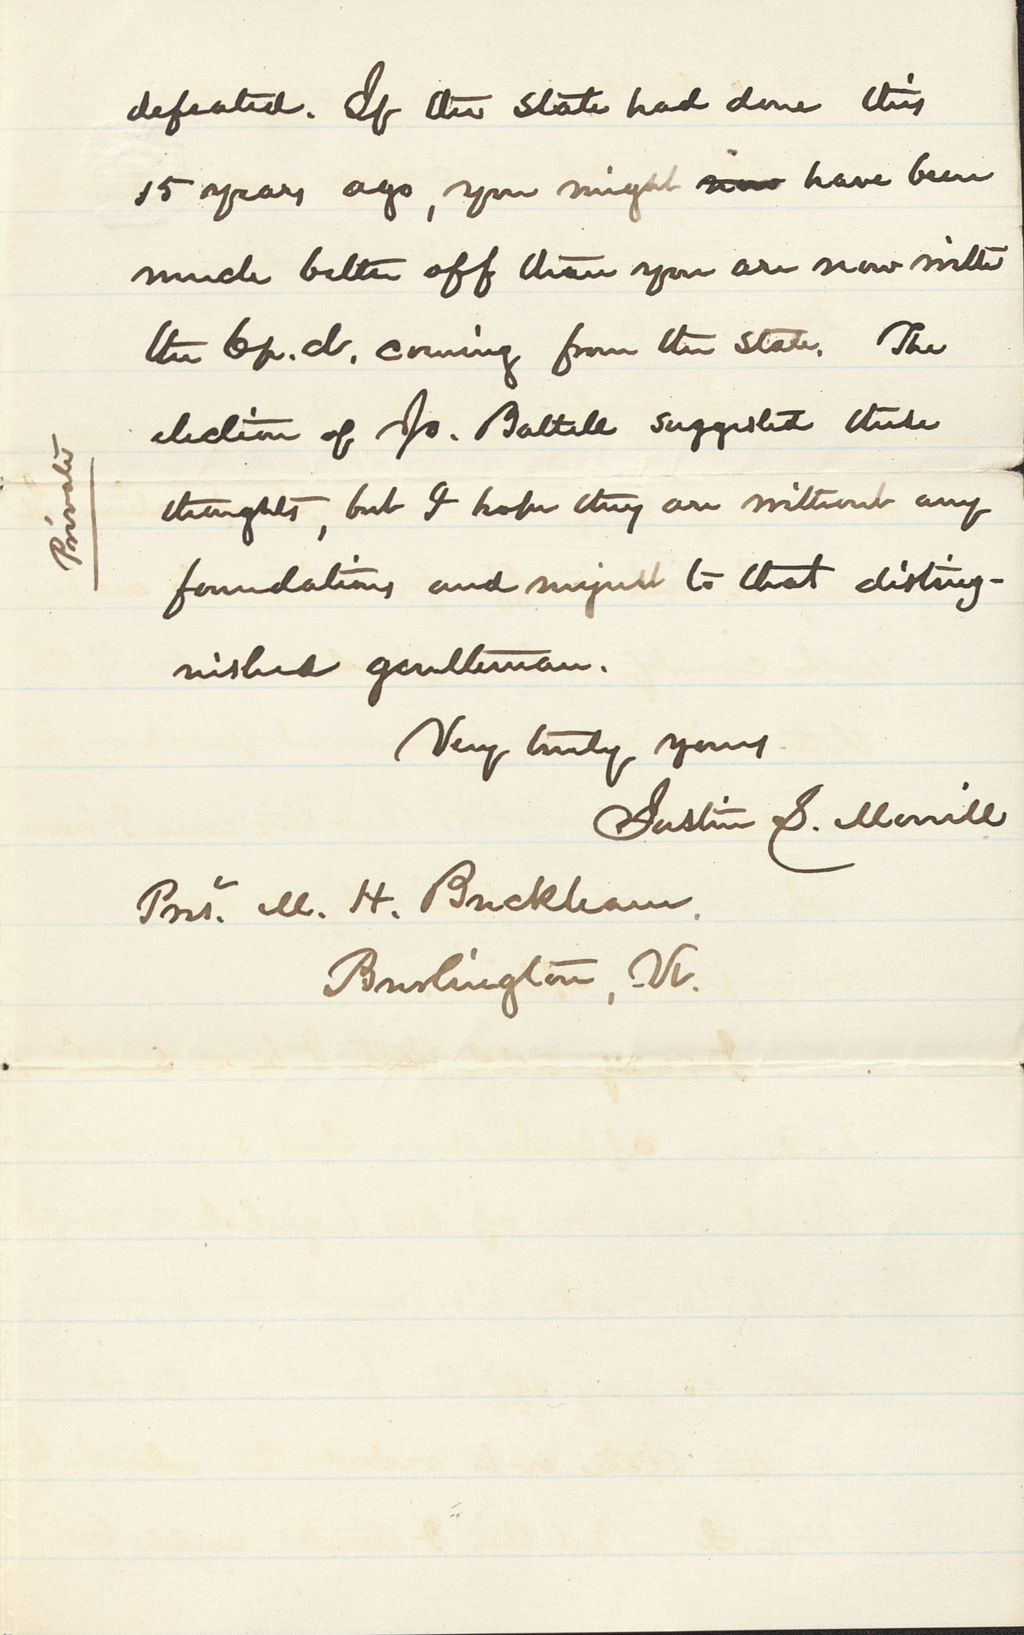 defeated. If the state had done this
15 years ago, you might now have been
much better off than you are now with
the 6 p.ct. coming from the state. The
election of Jo. Battell suggested these
thoughts, but I hope they are without any
Private
foundations and unjust to that disting-
uished gentleman.
Very truly yours
Justin S. Morrill
Prest. M. H. Buckham.
Burlington, Vt.